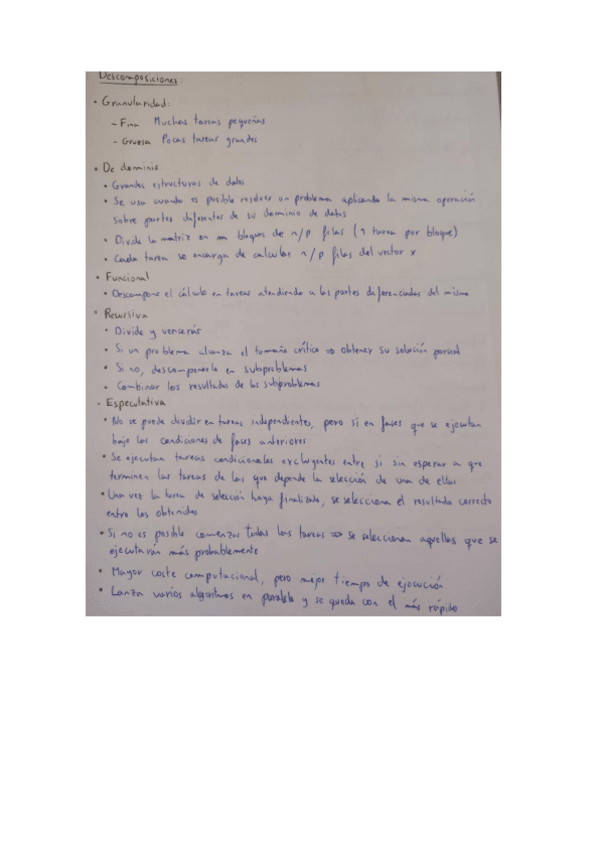 Descomposiciones:
• Granularidad:
- Fina Muchas tareas pequeñas
- Gruesa Pocas tareas grandes
• De dominio
• Grandes estructuras de datos
• Se usa cuando es posible resolver un problema aplicando la misma operación
sobre partes diferentes de su dominio de datos
• Divide la matriz en bloques de n/p filas (1 tarea por bloque)
• Cada tarea se encarga de calcular n/p filas del vector x
• Funcional
• Descompone el cálculo en tareas atendiendo a las partes diferenciadas del mismo
• Recursiva
• Divide y vencerás
• Si un problema alcanza el tamaño crítico => obtener su solución parcial
• Si no, descomponerlo en subproblemas
• Combinar los resultados de los subproblemas
• Especulativa
• No se puede dividir en tareas independientes, pero si en fases que se ejecutan
bajo las condiciones de fases anteriores
• Se ejecutan tareas condicionales excluyentes entre si sin esperar a que
terminen las tareas de las que depende la selección de una de ellas
• Una vez la tarea de selección haya finalizado, se selecciona el resultado correcto
entre los obtenidos
• Si no es posible comenzar todas las tareas => se seleccionan aquellas que se
ejecutarán más probablemente
• Mayor coste computacional, pero mejor tiempo de ejecución
• Lanza varios algoritmos en paralelo y se queda con el más rápido